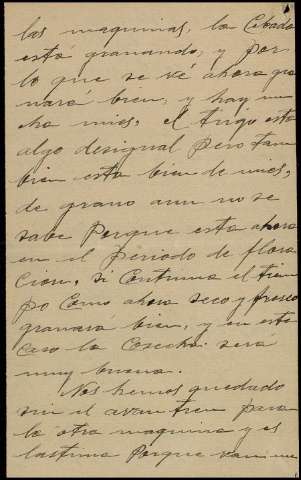 las maquinas, la Cebada
está granando, y por
lo que se vé ahora gra
nará bien, y hay mu
cha mies, el trigo está
algo desigual pero tam
bien esta bien de mies,
de grano aun no se
sabe porque esta ahora
en el periodo de flora
cion, si continua el tiem
po como ahora seco y fresco
granará bien, y en este
caso la Cosecha sera
muy buena.
Nos hemos quedado
sin el avantren para
la otra maquina y es
lastima porque van